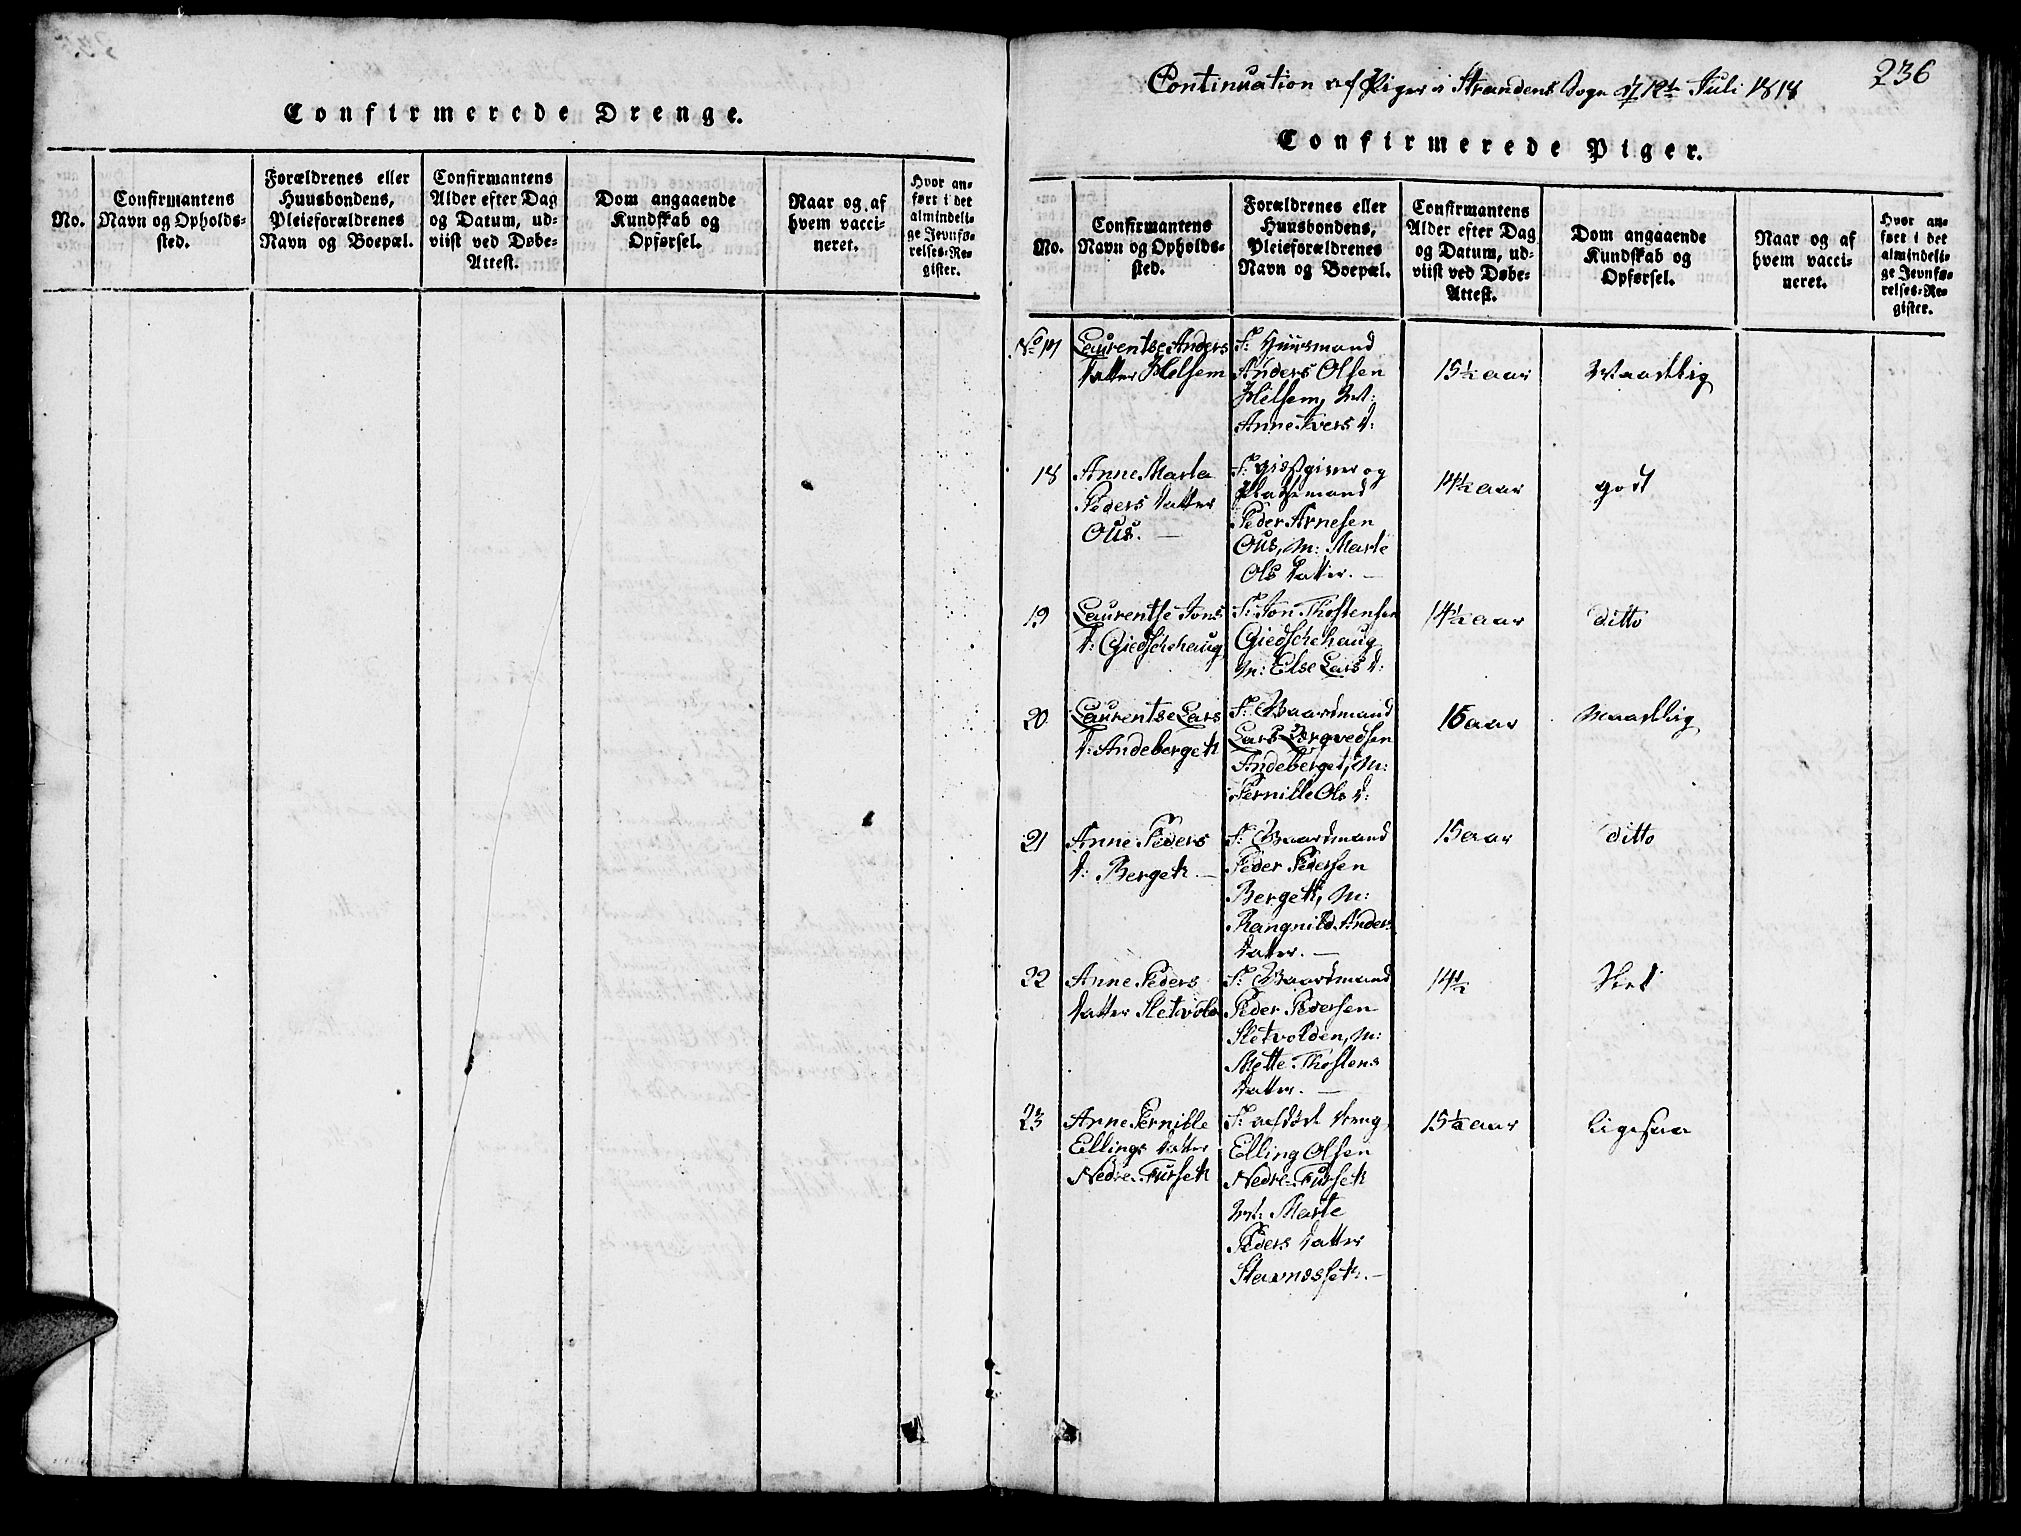 Confirmerede Drenge.
No.
Confirmantens
Navn og Opholds-
sted.
Forældrenes eller
Huusbondens,
Pleieforældrenes
Navn og Boepæl.
Confirmantens
Alder efter Dag
og Datum, ud-
viist ved Døbe-
Attest.
Dom angaaende
Kundskab og
Opførsel.
Naar og af
hvem vacci-
neret.
Hvor an-
ført i det
almindeli-
ge Jevnfø-
relses-Re-
gister.
Continuation af Piger i Strandens Sogn 12te Juli 1818
236
Confirmerede Piger.
No.
Confirmantens
Navn og Opholds-
sted.
Forældrenes eller
Huusbondens,
Pleieforældrenes
Navn og Boepæl.
Confirmantens
Alder efter Dag
og Datum, ud-
viist ved Døbe-
Attest.
Dom angaaende
Kundskab og
Opførsel.
Naar og af
hvem vacci-
neret.
Hvor an-
ført i det
almindeli-
ge Jevnfø-
relses-Re-
gister.
No 17
Laurentse Anders
datter Helsem
F: Huusmand
Anders Olsen
Hilsem, M:
Anne Ivers d:
15½ aar
Maadelig
18
Anne Marta
Peders datter
Ous. —
F: giæstgiver og
pladsmand
Peder Arnesen
Ous, M: Marte
Ols datter. —
14½ aar
godt
19
Laurentse Jons
d: Giedschehaug
F: Jon Thostensen
Giedschehaug
M: Else Lars d:
14½ aar
ditto
20
Laurentse Lars
d: Andeberget
F: Gaardmand
Lars
Andeberget, M:
Pernille Ols d:
16 aar
Maadelig
21
Anne Peders
d: Berget. —
F: Gaardmand
Peder Pedersen
Berget, M:
Rangnild Anders
datter. —
15 aar
ditto
22
Anne Peders
datter Sletvold
F: Gaardmand
Peder Pedersen
Sletvolden, M:
Mette Thostens
datter. —
14½
Slet
23
Anne Pernille
Ellings datter
Nedre-Furset
F: afdøde
Elling Olsen
Nedre-Furset
M: Marte
Peders datter
Stavnesset. —
15½ aar
ligesaa